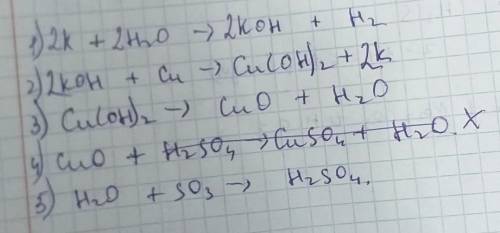 1) 2K + 2H2O → 2KOH + H2
2) 2KOH + Cu → Cu(OH)2 + 2K
3) Cu(OH)2 → CuO + H2O
4) CuO + H2SO4 → CuSO4 + H2O. X
5) H2O + SO3 → H2SO4.